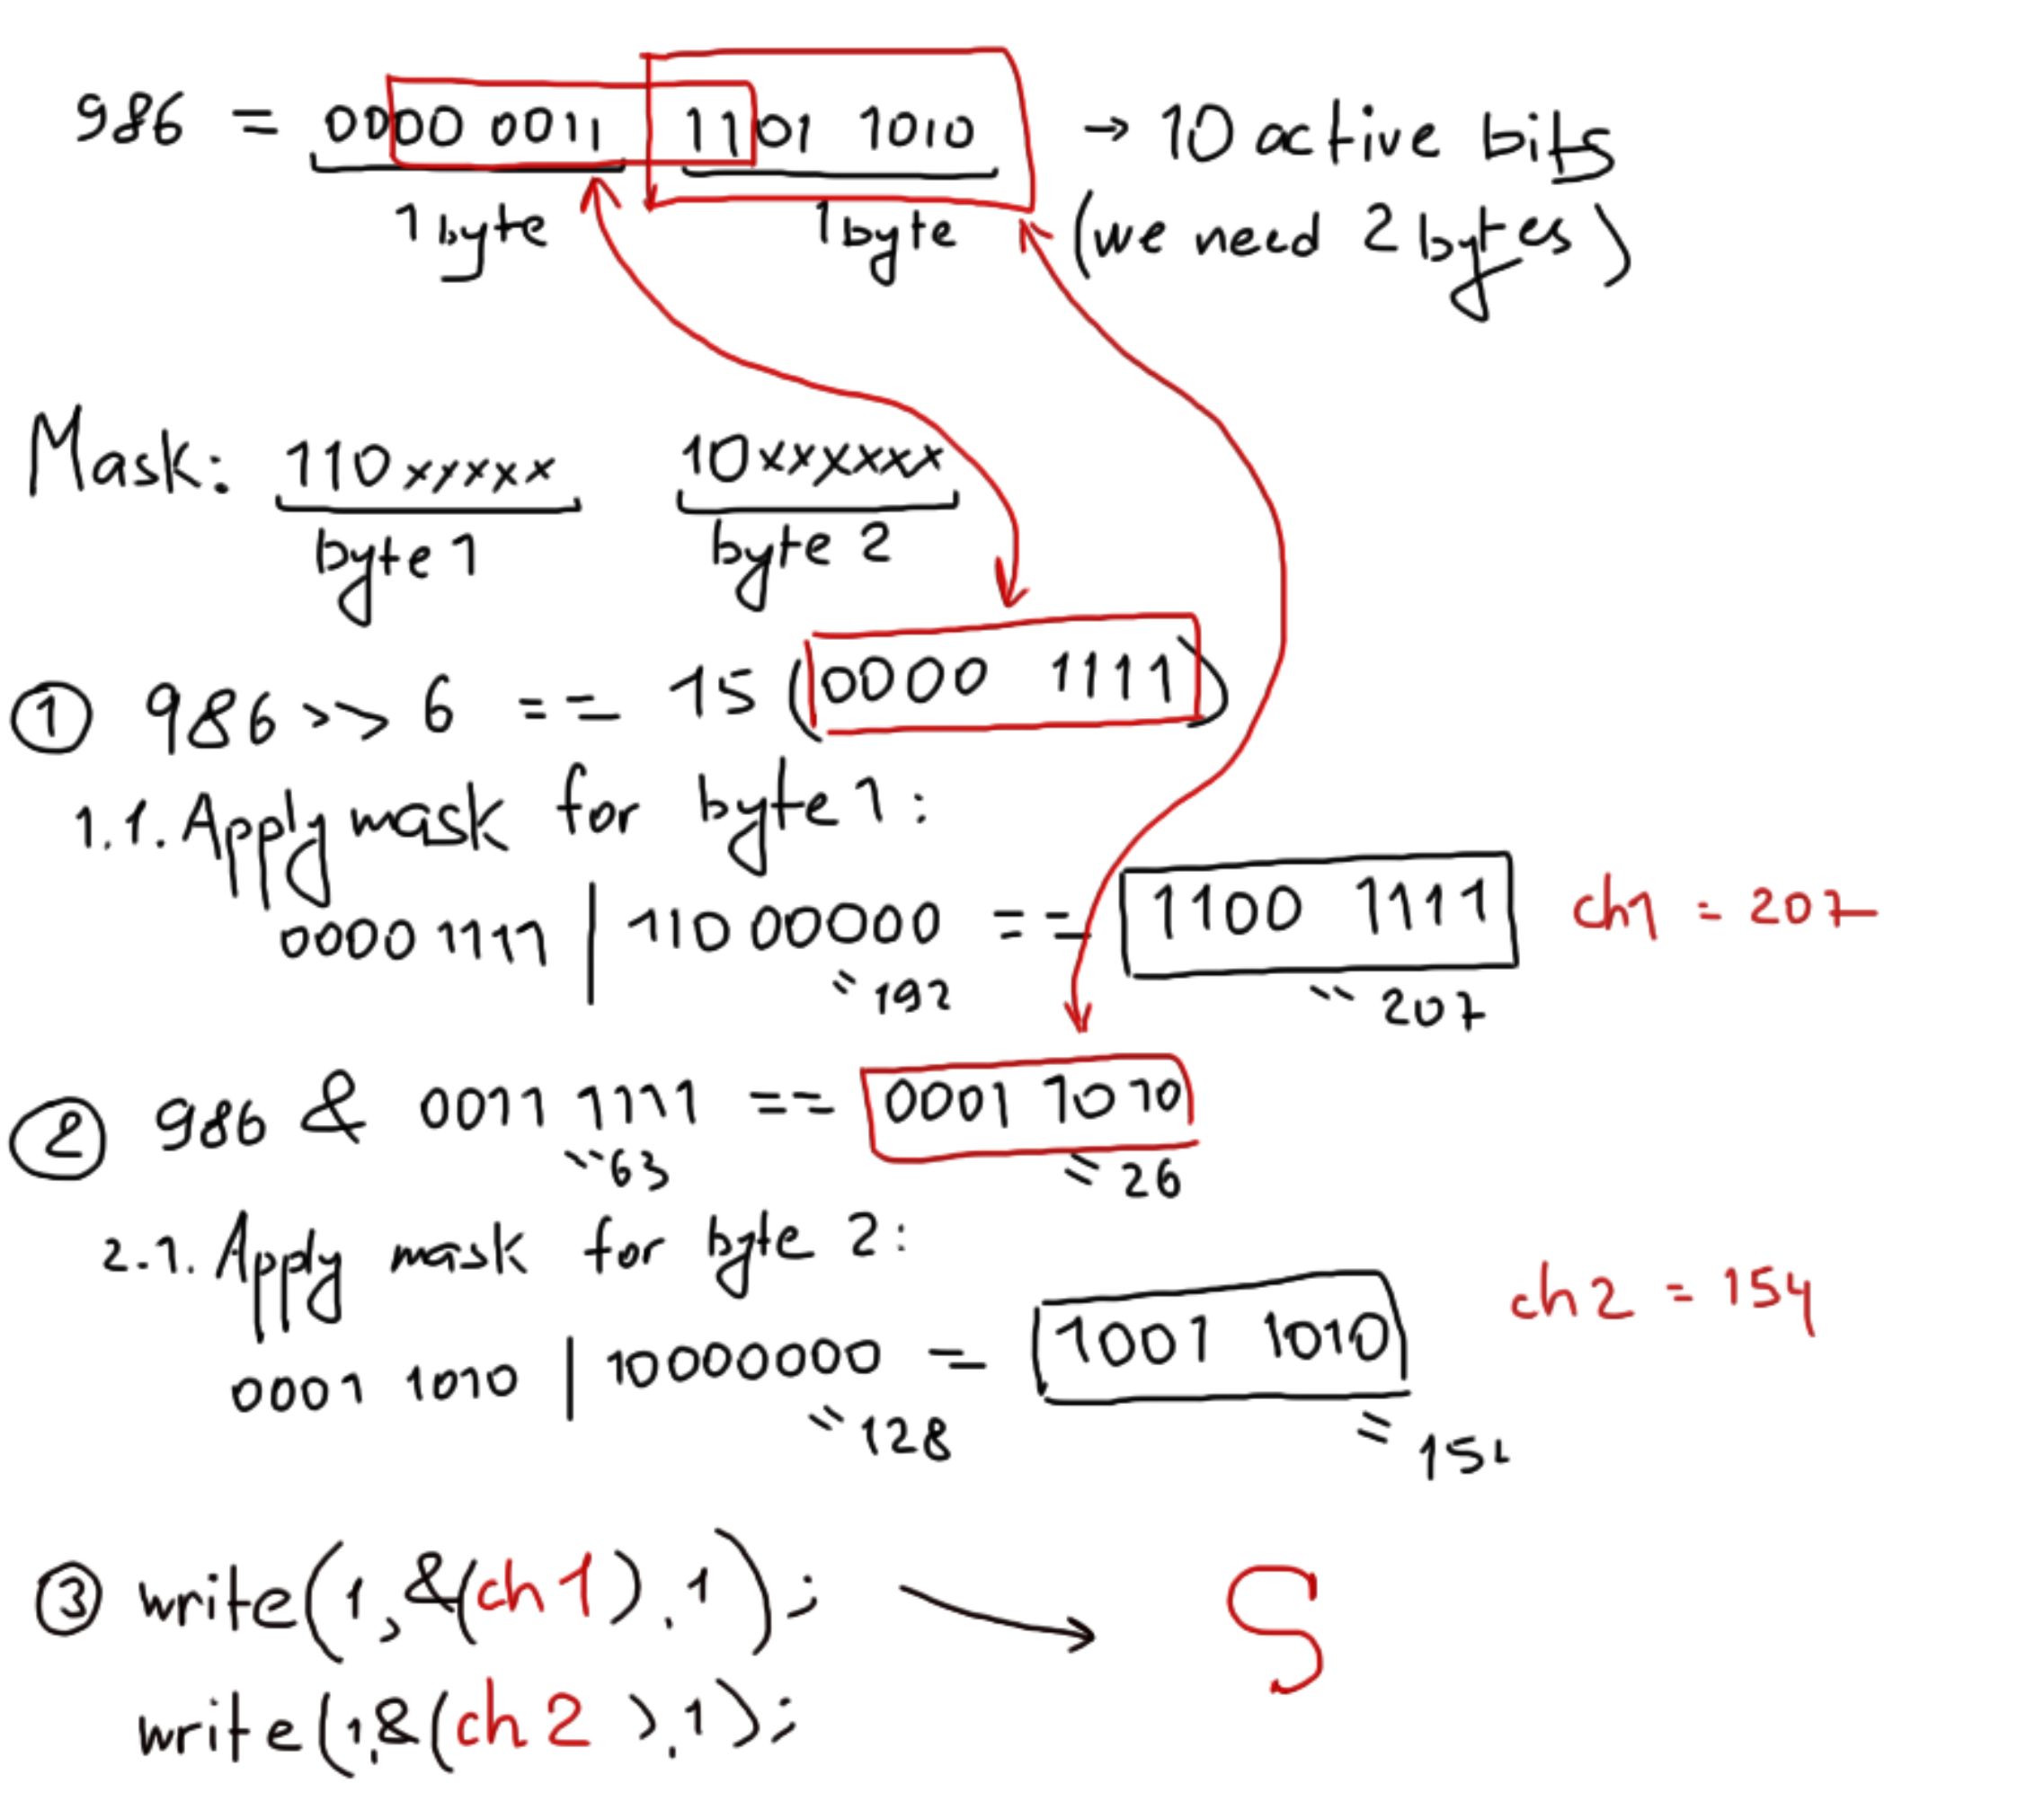 986 = 0000 0011 1101 1010 → 10 active bits
1 byte 1 byte (we need 2 bytes)
Mask: 110xxxxx 10xxxxxx
byte 1 byte 2
① 986 >> 6 == 15 (0000 1111)
1.1. Apply mask for byte 1:
0000 1111 | 110 00000 == 1100 1111 ch1 = 207
= 192 = 207
② 986 & 0011 1111 == 0001 1010
= 63 = 26
2.1. Apply mask for byte 2:
0001 1010 | 10000000 = 1001 1010 ch2 = 154
= 128 = 154
③ write(1,&(ch1),1); → Ϛ
write(1,&(ch2),1);